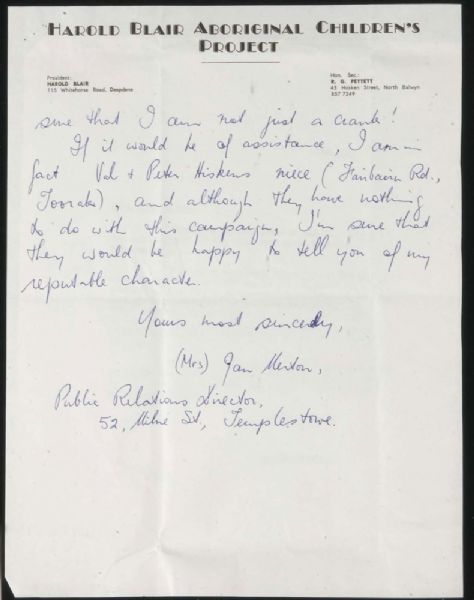 HAROLD BLAIR ABORIGINAL CHILDREN'S
PROJECT
President:
HAROLD BLAIR
115 Whitehorse Road, Deepdene
Hon. Sec.:
R. G. PETTETT
43 Hosken Street, North Balwyn
857 7249
sure that I am not just a crank!
If it would be of assistance, I am in
fact Val + Peter Hiskens niece (Fairbairn Rd.,
Toorak), and although they have nothing
to do with this campaign, I'm sure that
they would be happy to tell you of my
reputable character.
Yours most sincerely,
(Mrs) Jan Merton,
Public Relations Director,
52, Milne St., Templestowe.